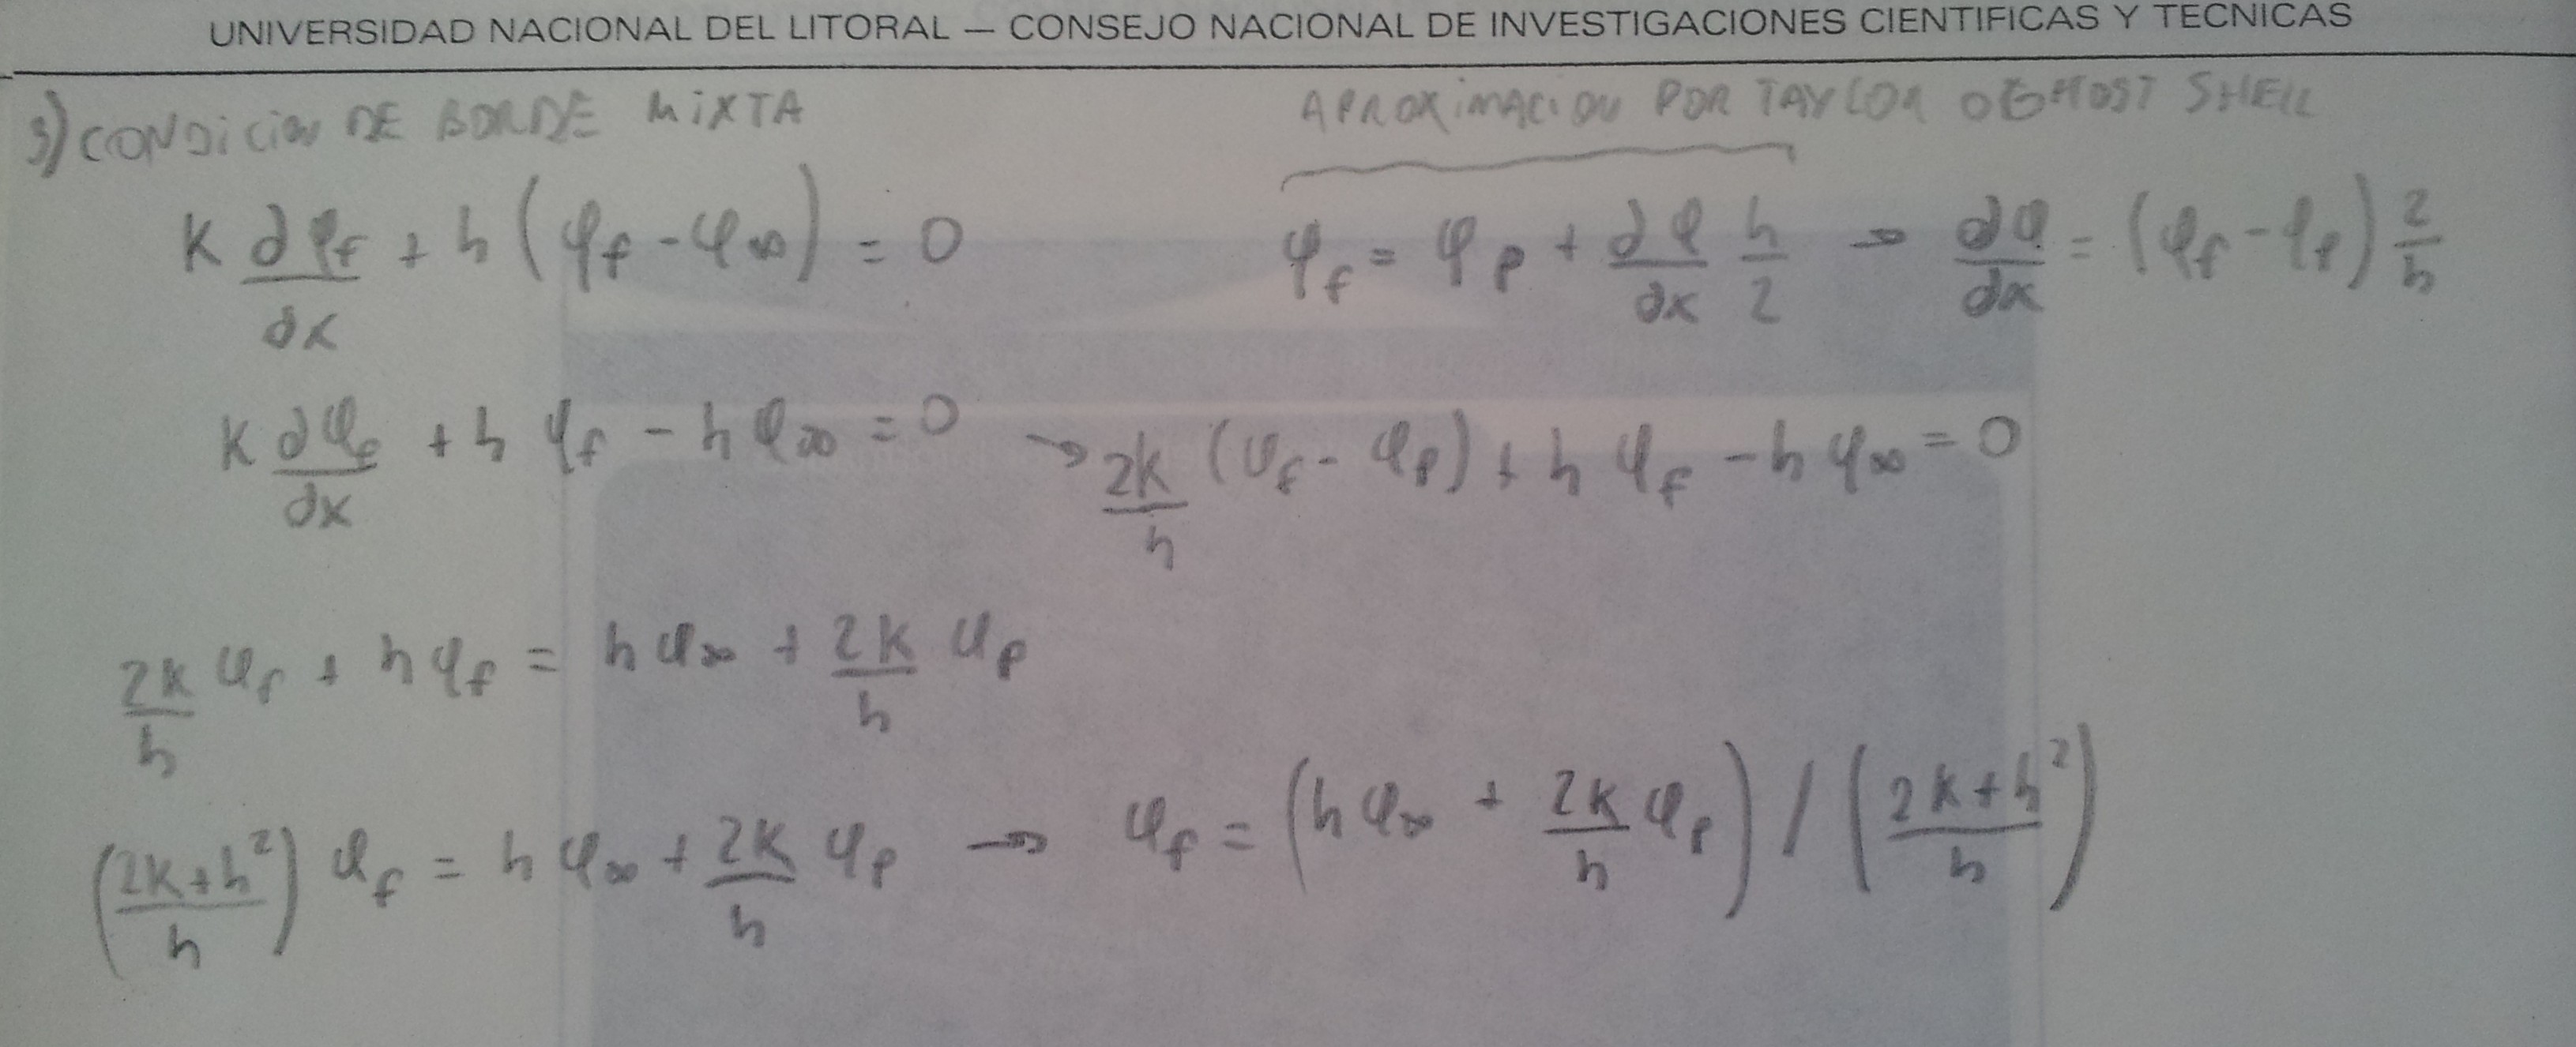 UNIVERSIDAD NACIONAL DEL LITORAL — CONSEJO NACIONAL DE INVESTIGACIONES CIENTIFICAS Y TECNICAS
3) CONDICION DE BORDE MIXTA
APROXIMACION POR TAYLOR O GHOST SHELL
K ∂φf/∂x + h (φf - φ∞) = 0
φf = φp + ∂φ/∂x h/2 → ∂φ/∂x = (φf - φp) 2/h
K ∂φf/∂x + h φf - h φ∞ = 0 → 2K/h (φf - φp) + h φf - h φ∞ = 0
2K/h φf + h φf = h φ∞ + 2K/h φp
((2K+h²)/h) φf = h φ∞ + 2K/h φp → φf = (h φ∞ + 2K/h φp) / ((2K+h²)/h)